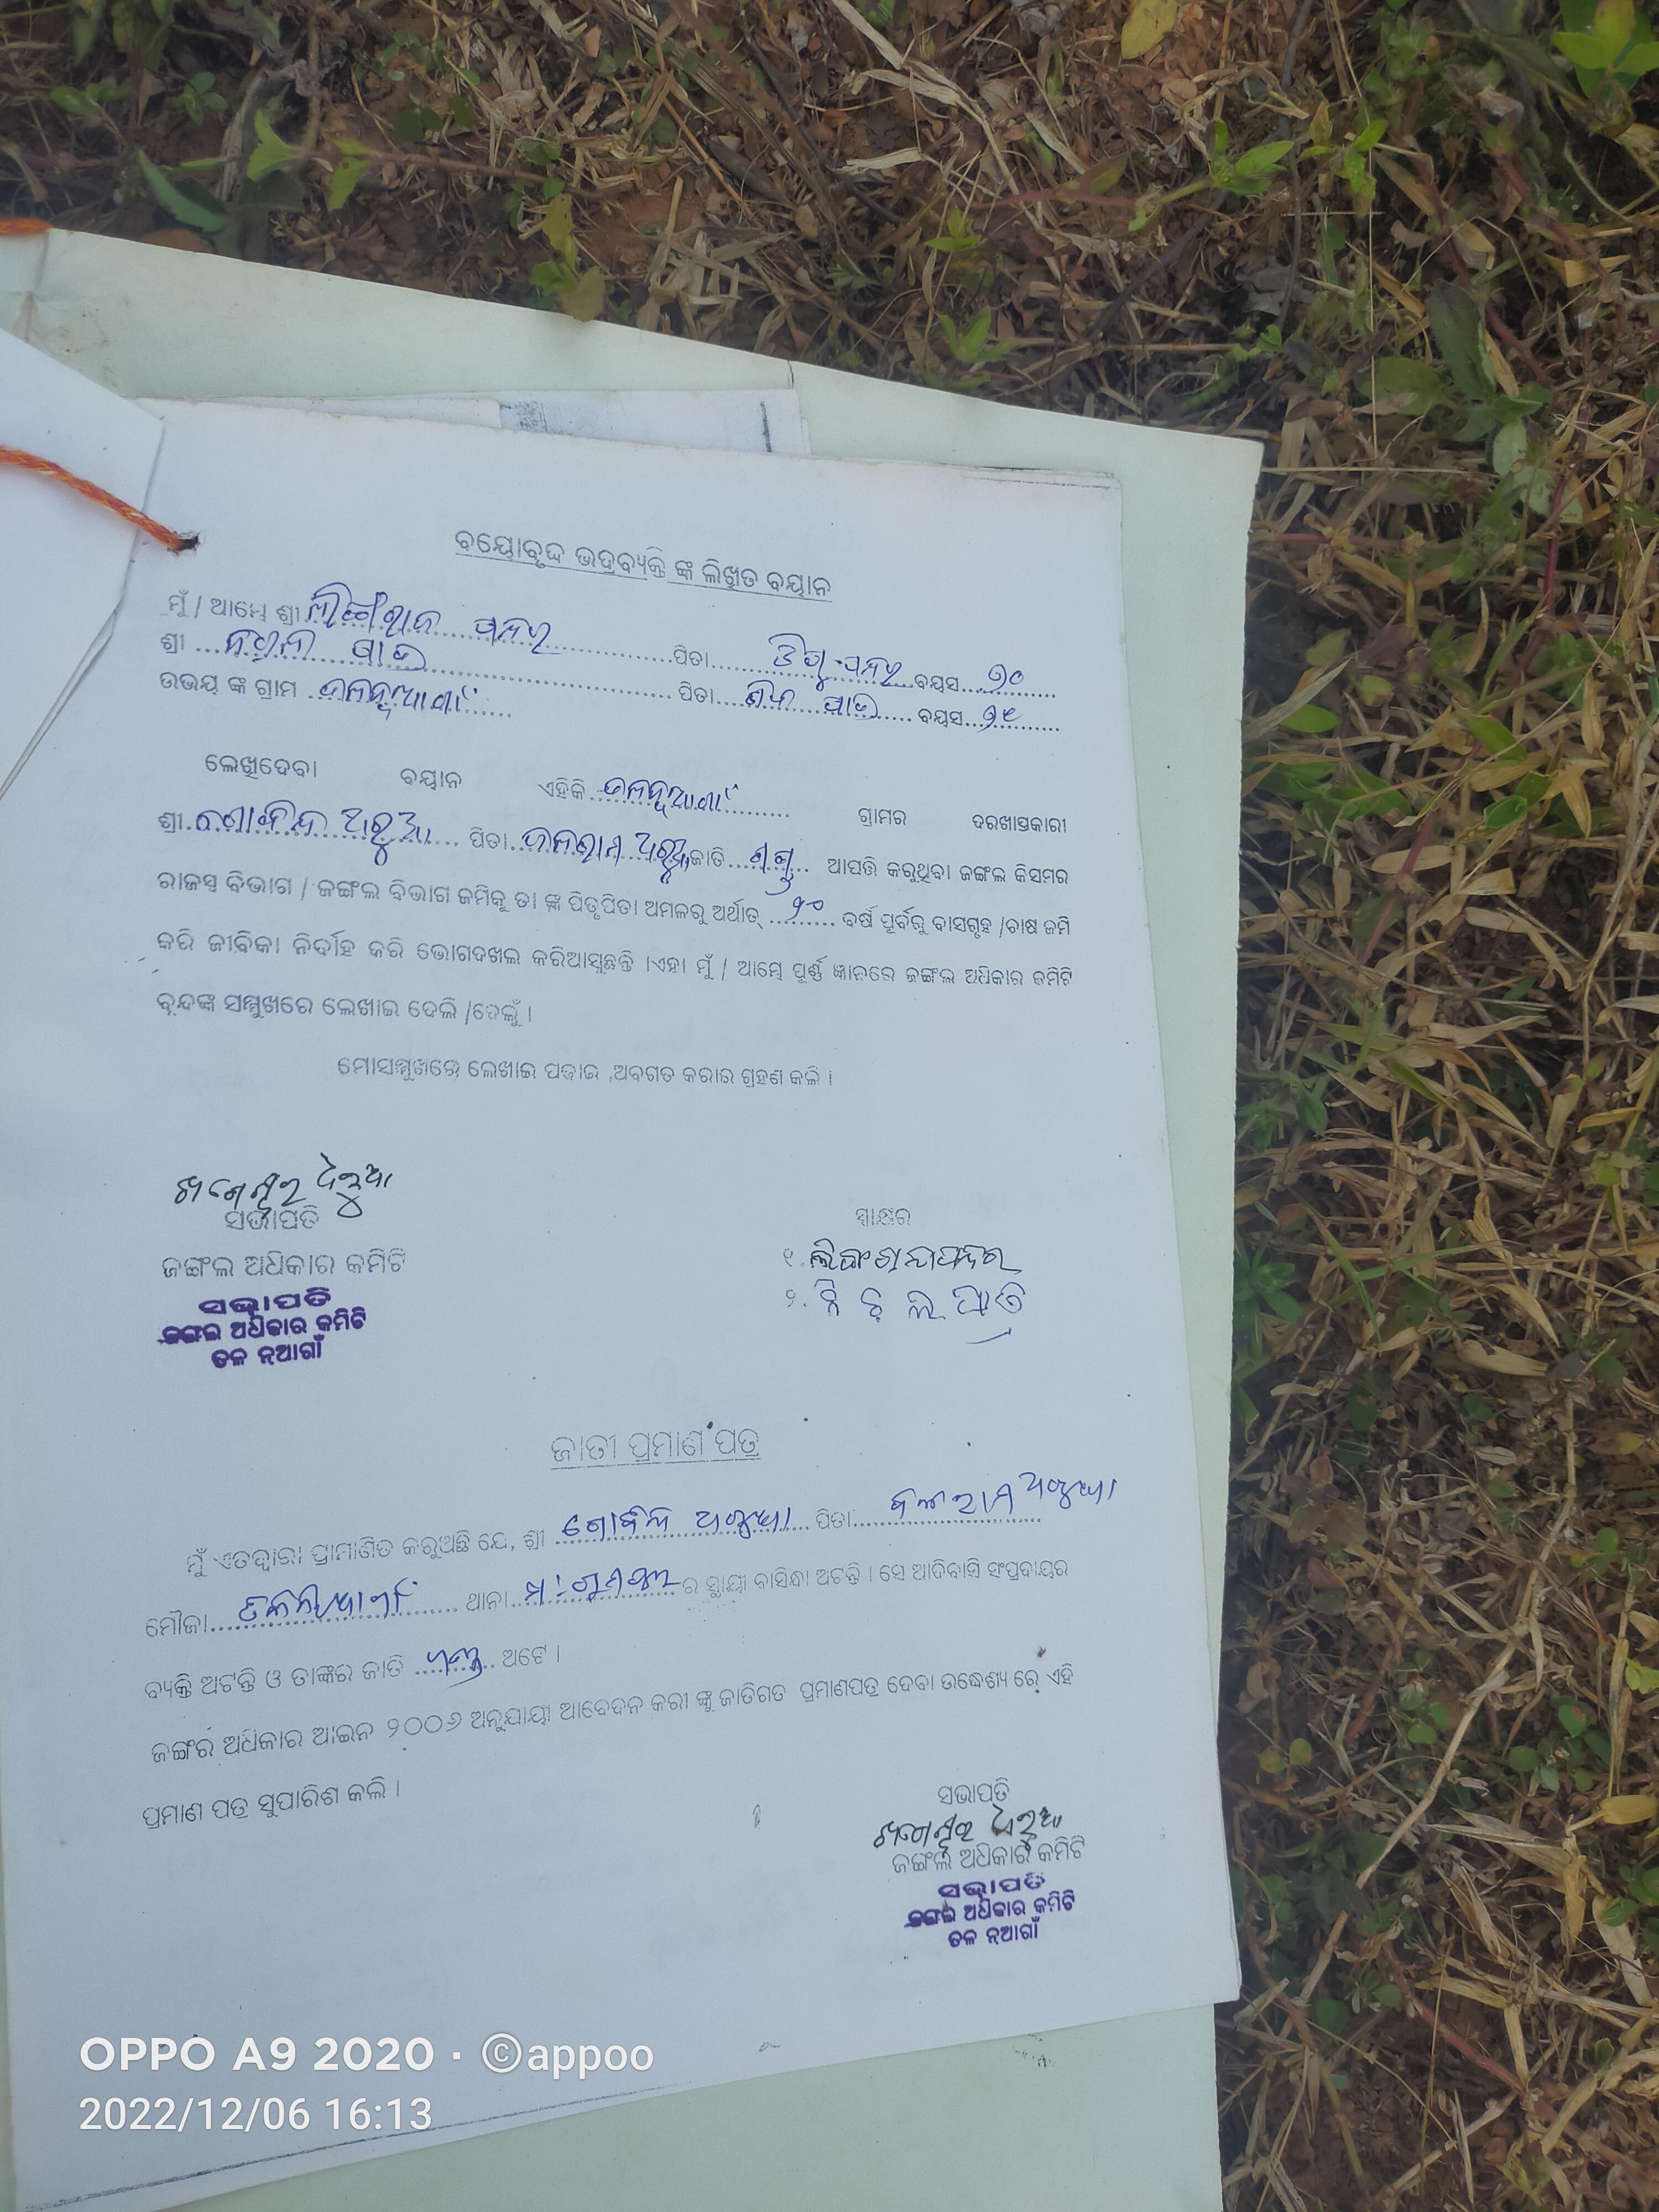 ବୟୋବୃଦ୍ଧ ଭଦ୍ରବ୍ୟକ୍ତି ଙ୍କ ଲିଖିତ ବୟାନ
ମୁଁ / ଆମ୍ଭେ ଶ୍ରୀ ପିତା ବୟସ ୭୦
ଶ୍ରୀ ପିତା ବୟସ
ଉଭୟ ଙ୍କ ଗ୍ରାମ ତଳନୂଆଗାଁ
ଲେଖିଦେବା ବୟାନ ଏହିକି ତଳନୂଆଗାଁ ଗ୍ରାମର ଦରଖାସ୍ତକାରୀ
ଶ୍ରୀ ଗୋବିନ୍ଦ ପିତା ବଳରାମ ଜାତି ଆପତ୍ତି କରୁଥିବା ଜଙ୍ଗଲ କିସମର
ରାଜସ୍ୱ ବିଭାଗ / ଜଙ୍ଗଲ ବିଭାଗ ଜମିକୁ ତା ଙ୍କ ପିତୃପିତା ଅମଳରୁ ଅର୍ଥାତ୍ ବର୍ଷ ପୂର୍ବରୁ ବାସଗୃହ /ଚାଷ ଜମି
କରି ଜୀବିକା ନିର୍ବାହ କରି ଭୋଗଦଖଲ କରିଆସୁଛନ୍ତି ।ଏହା ମୁଁ / ଆମ୍ଭେ ପୂର୍ଣ୍ଣ ଜ୍ଞାନରେ ଜଙ୍ଗଲ ଅଧିକାର କମିଟି
ବୃନ୍ଦଙ୍କ ସମ୍ମୁଖରେ ଲେଖାଇ ଦେଲି /ଦେଲୁଁ ।
ମୋସମ୍ମୁଖରେ ଲେଖାଇ ପଢାଇ ,ଅବଗତ କରାଇ ଗ୍ରହଣ କଲି ।
ସଭାପତି
ଜଙ୍ଗଲ ଅଧିକାର କମିଟି
ସଭାପତି
ଜଙ୍ଗଲ ଅଧିକାର କମିଟି
ତଳ ନୂଆଗାଁ
ସ୍ୱାକ୍ଷର
୧.
୨.
ଜାତୀ ପ୍ରମାଣ ପତ୍ର
ମୁଁ ଏତଦ୍ୱାରା ପ୍ରାମାଣିତ କରୁଅଛି ଯେ, ଶ୍ରୀ ଗୋବିନ୍ଦ ପିତା ବଳରାମ
ମୌଜା ତଳନୂଆଗାଁ ଥାନା ର ସ୍ଥାୟୀ ବାସିନ୍ଦା ଅଟନ୍ତି । ସେ ଆଦିବାସି ସଂପ୍ରଦାୟର
ବ୍ୟକ୍ତି ଅଟନ୍ତି ଓ ତାଙ୍କର ଜାତି ଅଟେ ।
ଜଙ୍ଗର ଅଧିକାର ଆଇନ ୨୦୦୬ ଅନୁଯାୟୀ ଆବେଦନ କରୀ ଙ୍କୁ ଜାତିଗତ ପ୍ରମାଣପତ୍ର ଦେବା ଉଦ୍ଧେଶ୍ୟ ରେ ଏହି
ପ୍ରମାଣ ପତ୍ର ସୁପାରିଶ କଲି ।
ସଭାପତି
ଜଙ୍ଗଲ ଅଧିକାର କମିଟି
ସଭାପତି
ଜଙ୍ଗଲ ଅଧିକାର କମିଟି
ତଳ ନୂଆଗାଁ
OPPO A9 2020 · ©appoo
2022/12/06 16:13